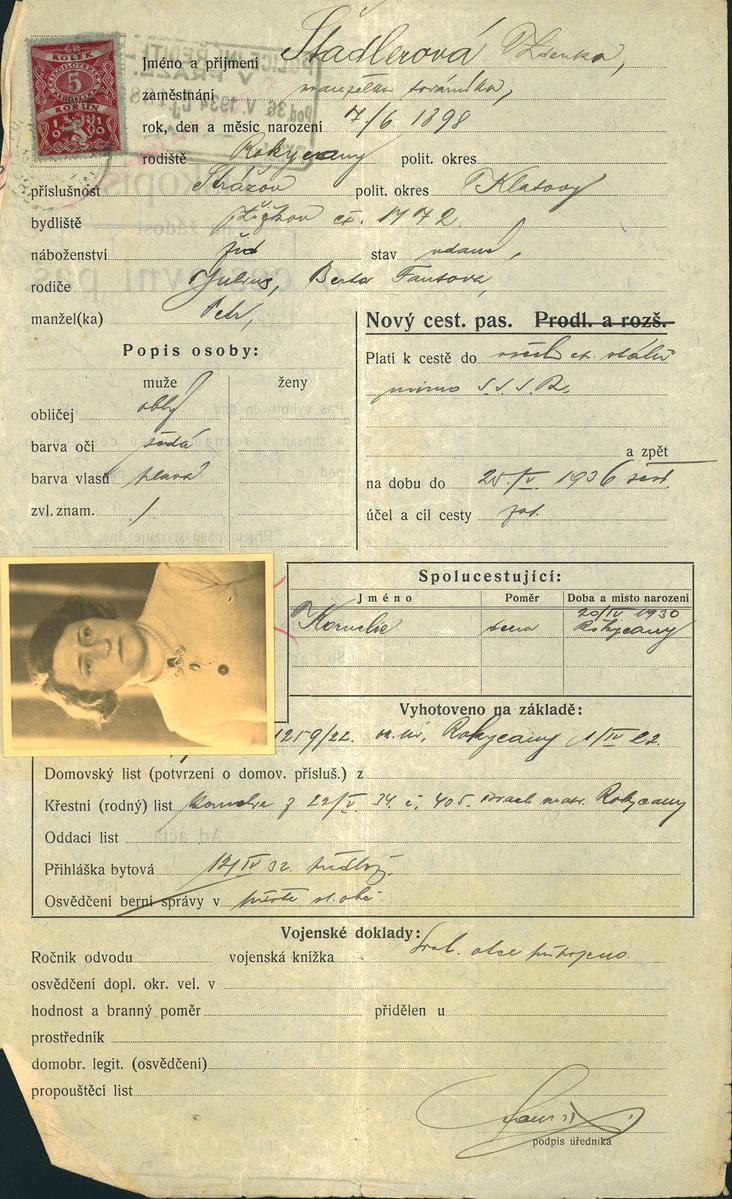 KOLEK
5
KORUN
Jméno a příjmení Štadlerová Zdenka,
zaměstnání manželka továrníka,
rok, den a měsíc narození 7/6. 1898
rodiště Rokycany polit. okres
příslušnost Strážov polit. okres Klatovy
bydliště Žižkov čp. 1472.
náboženství žid stav vdaná,
rodiče Julius, Berta Fantova,
manžel(ka) Petr,
Popis osoby:
muže ženy
obličej oblý
barva očí šedá
barva vlasů plavá
zvl. znam. /
Nový cest. pas. Prodl. a rozš.
Platí k cestě do všech ev. států
mimo S.S.S.R.
a zpět
na dobu do 25./V. 1936
účel a cíl cesty
Spolucestující:
Jméno Poměr Doba a místo narození
Kornelie dcera 20/IV 1930 Rokycany
Vyhotoveno na základě:
1259/22. Rokycany 1/IV 22.
Domovský list (potvrzení o domov. přísluš.) z
Křestní (rodný) list Kornelie z 22/V. 34 č. 405. matr. Rokycany
Oddací list
Přihláška bytová 12/IV 32.
Osvědčení berní správy v
Vojenské doklady:
Ročník odvodu vojenská knížka
osvědčení dopl. okr. vel. v
hodnost a branný poměr přidělen u
prostředník
domobr. legit. (osvědčení)
propouštěcí list
podpis úředníka